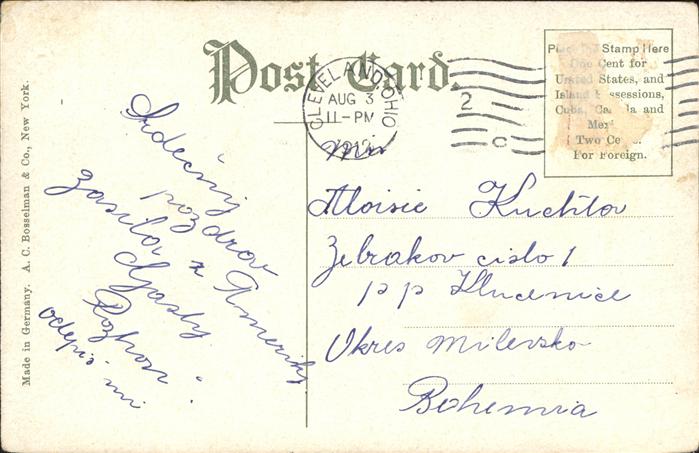 Post Card.
Place the Stamp Here
One Cent for
United States, and
Island Possessions,
Cuba, Canada and
Mexico
Two Cents
For Foreign.
CLEVELAND, OHIO
AUG 3
11-PM
2
Made in Germany. A. C. Bosselman & Co., New York.
Srdečný
pozdrav
zasila z Ameriky
odepis mi
Mr
Aloisie Kuchta
Zebrakov cislo 1
p p Klucenice
Okres Milevsko
Bohemia